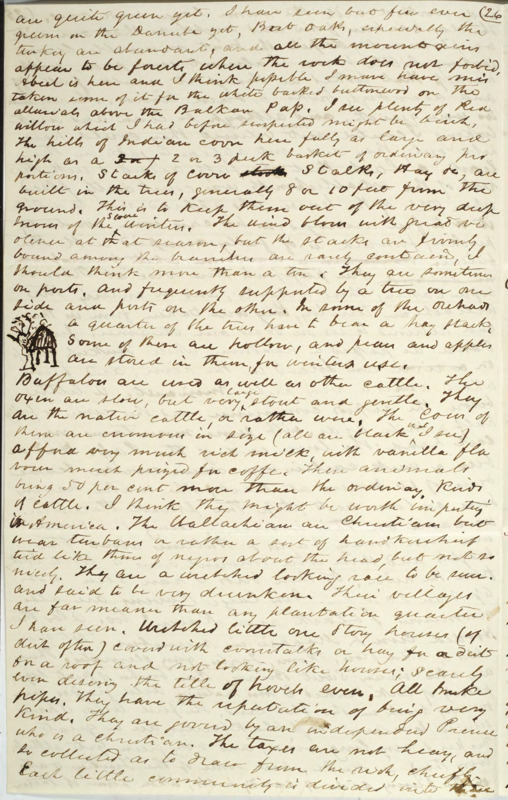 (26
are quite green yet. I have seen but few ever
green on the Danube yet, But Oaks, especially the
turkey are abundant, and all the mountains
appear to be forests where the rock does not forbid.
is here and I think possible I may have mis
taken some of it for the white barked buttonwood on the
alluvials above the Balkan Pass. I see plenty of Red
willow which I had before suspected might be birch.
The hills of Indian corn here fully as large and
high as a 2 or 3 peck basket of ordinary pro
portions. Stacks of Corn Stalks, Hay &c, are
built in the trees, generally 8 or 10 feet from the
ground. This is to keep them out of the very deep
snows of the some winters. The wind blows with great vi
olence at that season, but the stacks are firmly
bound among the branches are rarely contain'd, I
should think more than a ton. They are sometimes
on posts, and frequently supported by a tree on one
side and posts on the other. In some of the orchards
a quarter of the trees have to bear a hay stack,
Some of them are hollow, and pears and apples
are stored in them for winters use.
Buffaloes are used as well as other cattle. The
oxen are slow, but very large, stout and gentle. They
are the native cattle, or rather were. The Cows of
them are enormous in size (all are black that I see)
afford very much rich milk, with vanilla fla
vour much prized for coffe. These animals
bring 50 per cent more than the ordinary kinds
of cattle. I think they might be worth importing
in America. The Wallachian are Christians but
wear turbans or rather a sort of handkerchief
tied like those of negros about the head, but not so
nicely. They are a wretched looking race to be sure.
and said to be very drunken. Their villages
are far meaner than any plantation quarter
I have seen. Wretched little one Story houses (of
dirt often) covered with cornstalks or hay for a dirt
for a roof and not looking like houses; scarcely
even deserving the title of hovels even. All smoke
pipes. They have the reputation of being very
kind. They are govern'd by an independent Prince
who is a christian. The taxes are not heavy, and
so collected as to draw from the rich, chiefly
Each little community is divided into three